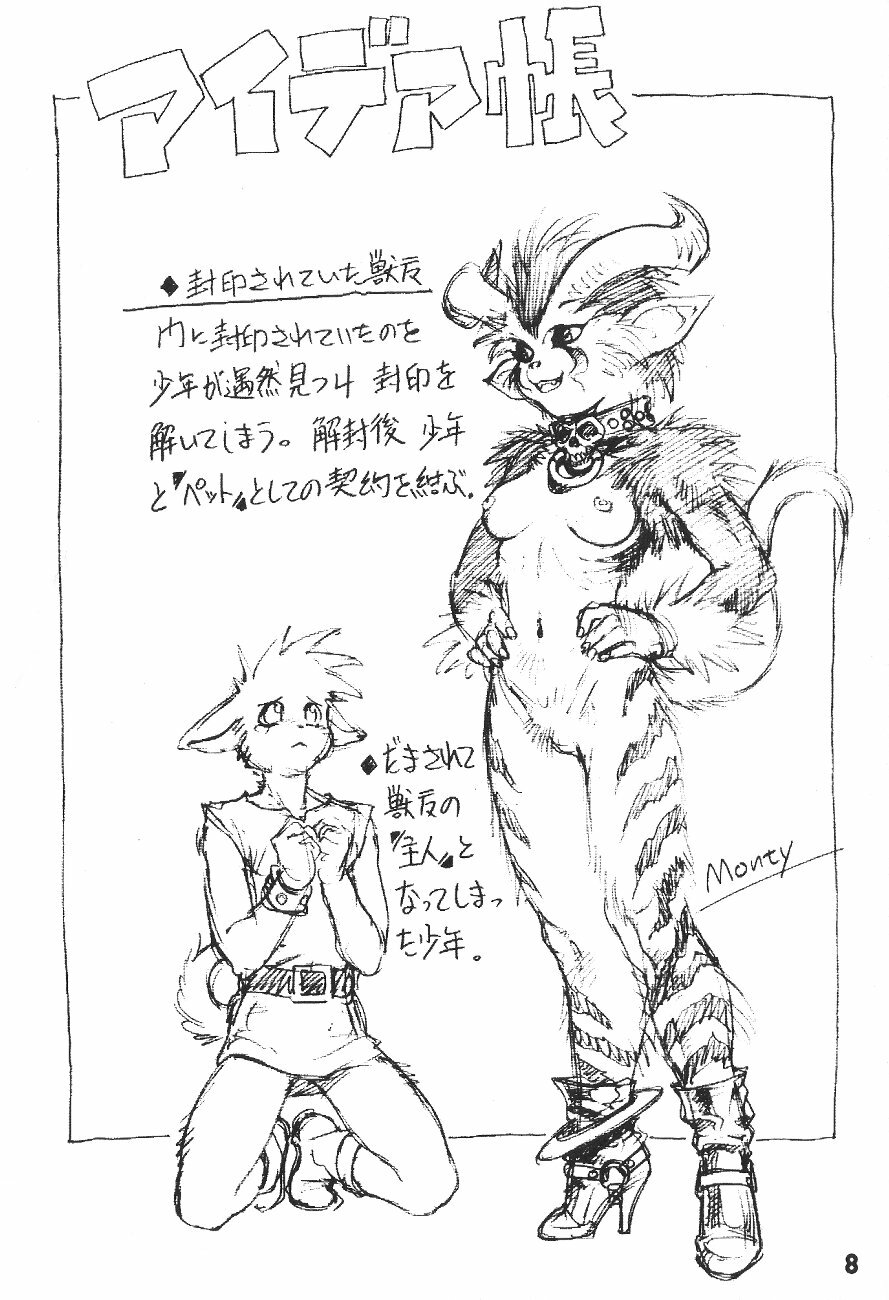 アイデア帳
◆封印されていた獣反
内に封印されていたのを
少年が遇然見つけ 封印を
解いてしまう。解封後 少年
と『ペット』としての契約を結ぶ。
◆だまされて
獣反の
『主人』と
なってしまっ
た少年。
Monty
8